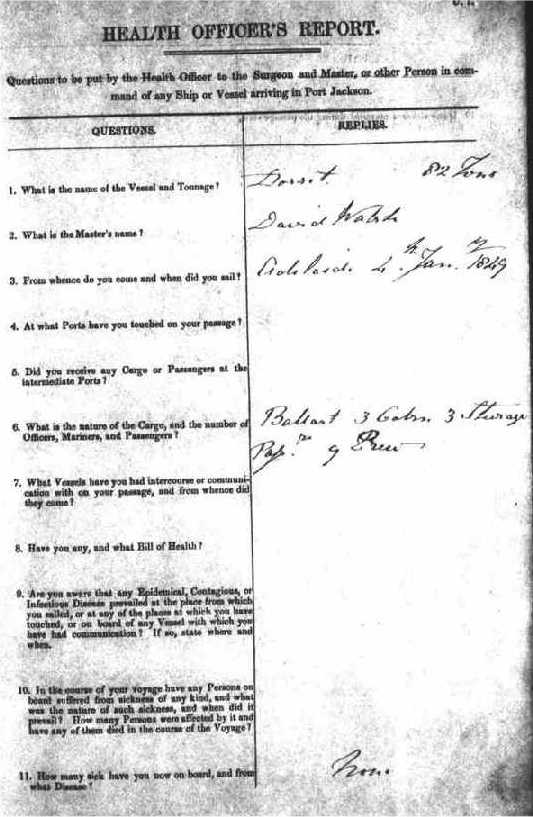 HEALTH OFFICER'S REPORT.
Questions to be put by the Health Officer to the Surgeon and Master, or other Person in com-
mand of any Ship or Vessel arriving in Port Jackson.
QUESTIONS.
REPLIES.
1. What is the name of the Vessel and Tonnage?
Dorset 82 Tons
2. What is the Master's name?
David Walsh
3. From whence do you come and when did you sail?
Adelaide 4th Jany 1849
4. At what Ports have you touched on your passage?
5. Did you receive any Cargo or Passengers at the
intermediate Ports?
6. What is the nature of the Cargo, and the number of
Officers, Mariners, and Passengers?
Ballast 3 Cabin 3 Steerage
Pasrs 9 Crew
7. What Vessels have you had intercourse or communi-
cation with on your passage, and from whence did
they come?
8. Have you any, and what Bill of Health?
9. Are you aware that any Epidemical, Contagious, or
Infectious Disease prevailed at the place from which
you sailed, or at any of the places at which you have
touched, or on board of any Vessel with which you
have had communication? If so, state where and
when.
10. In the course of your voyage have any Persons on
board suffered from sickness of any kind, and what
was the nature of such sickness, and when did it
prevail? How many Persons were affected by it and
have any of them died in the course of the Voyage?
11. How many sick have you now on board, and from
what Disease?
None